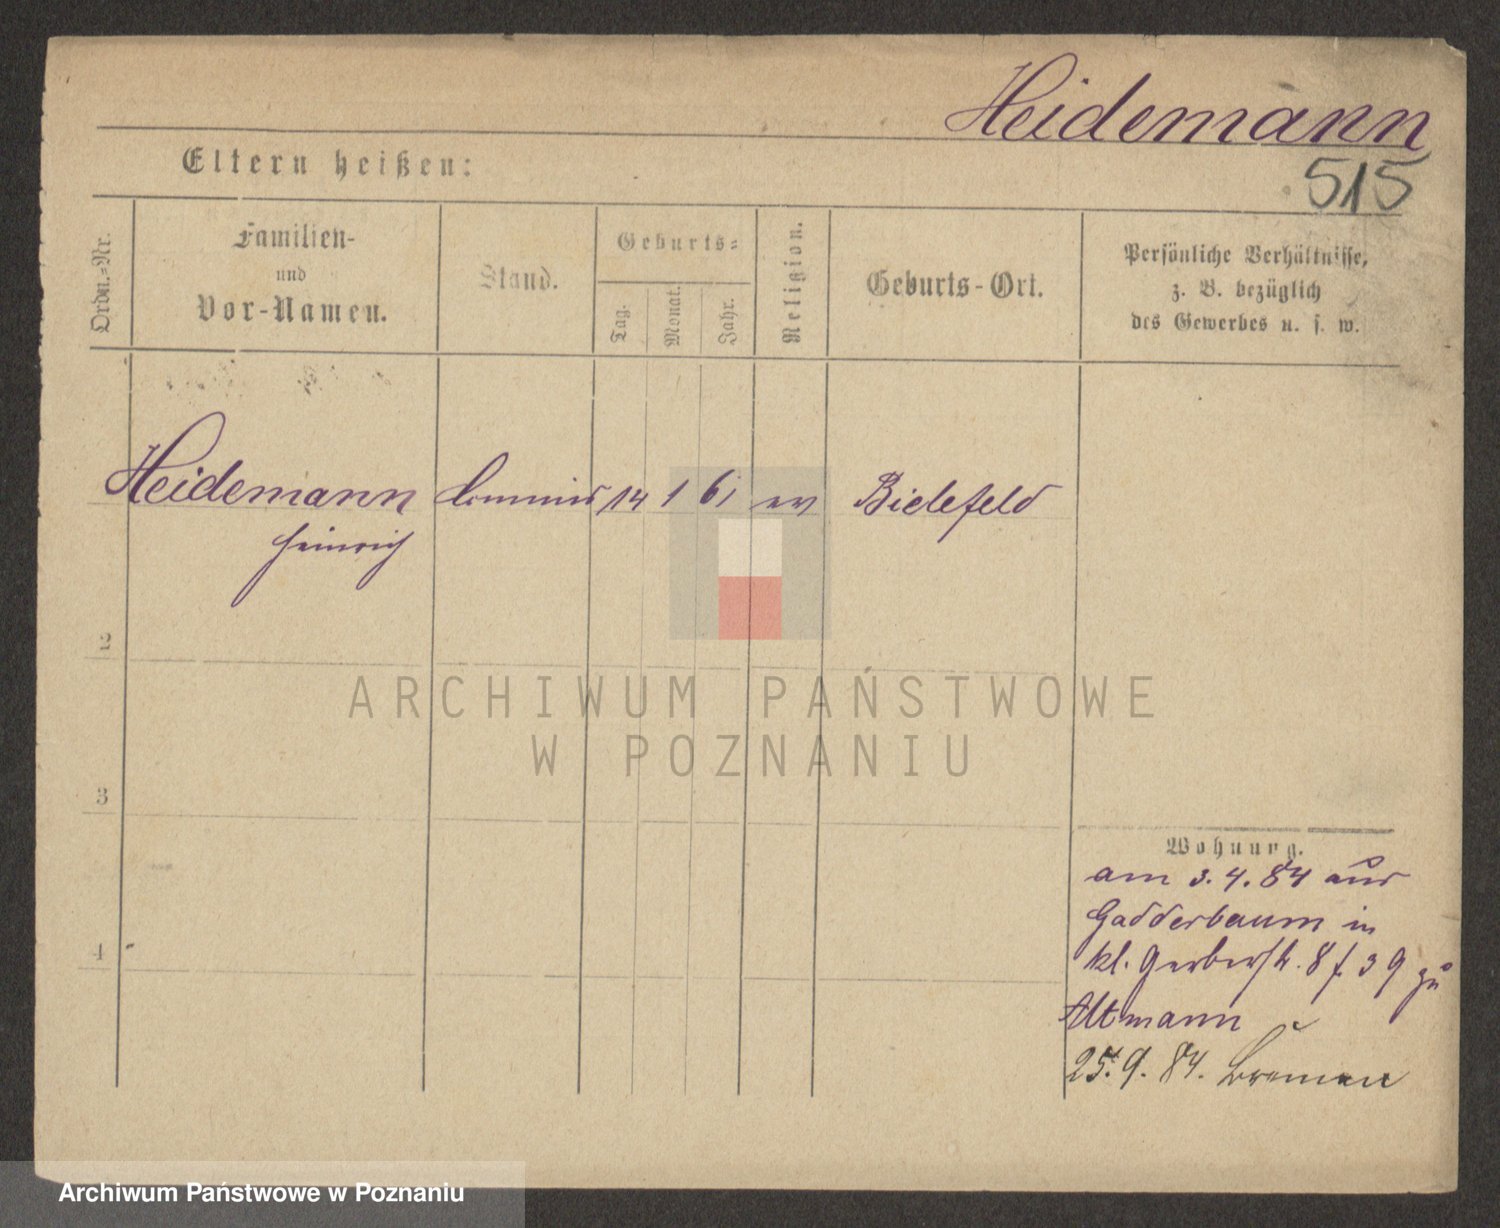 Heidemann
515
Eltern heißen:
Ordn.=Nr.
Familien-
und
Vor-Namen.
Stand.
Geburts=
Tag.
Monat.
Jahr.
Religion.
Geburts-Ort.
Persönliche Verhältnisse,
z. B. bezüglich
des Gewerbes u. s. w.
Heidemann Commis 14 1 61 ev Bielefeld
Heinrich
2
3
4
Wohnung.
am 3. 4. 84 aus
Gadderbaum in
kl. Gerberstr. 8 f. 39 zu
Altmann
25. 9. 84. Bremen
ARCHIWUM PAŃSTWOWE
W POZNANIU
Archiwum Państwowe w Poznaniu